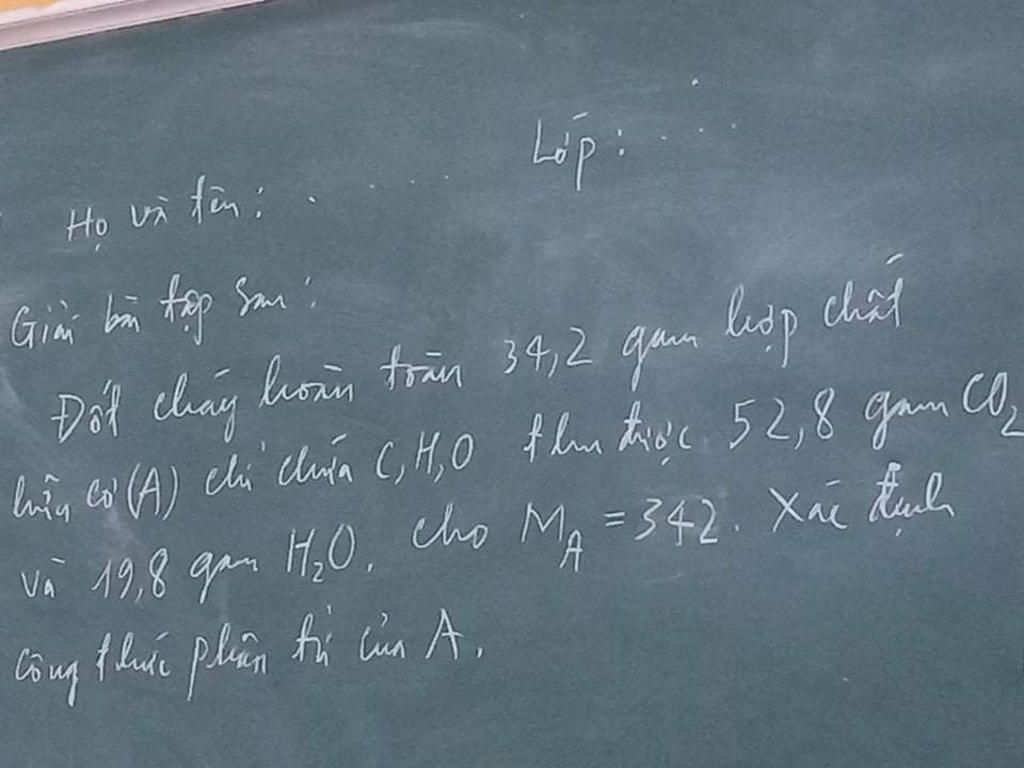 Lớp : . . . .
Họ và tên : . . . . .
Giải bài tập sau :
Đốt cháy hoàn toàn 34,2 gam hợp chất
hữu cơ (A) chỉ chứa C, H, O thu được 52,8 gam CO₂
và 19,8 gam H₂O. Cho M_A = 342. Xác định
công thức phân tử của A.